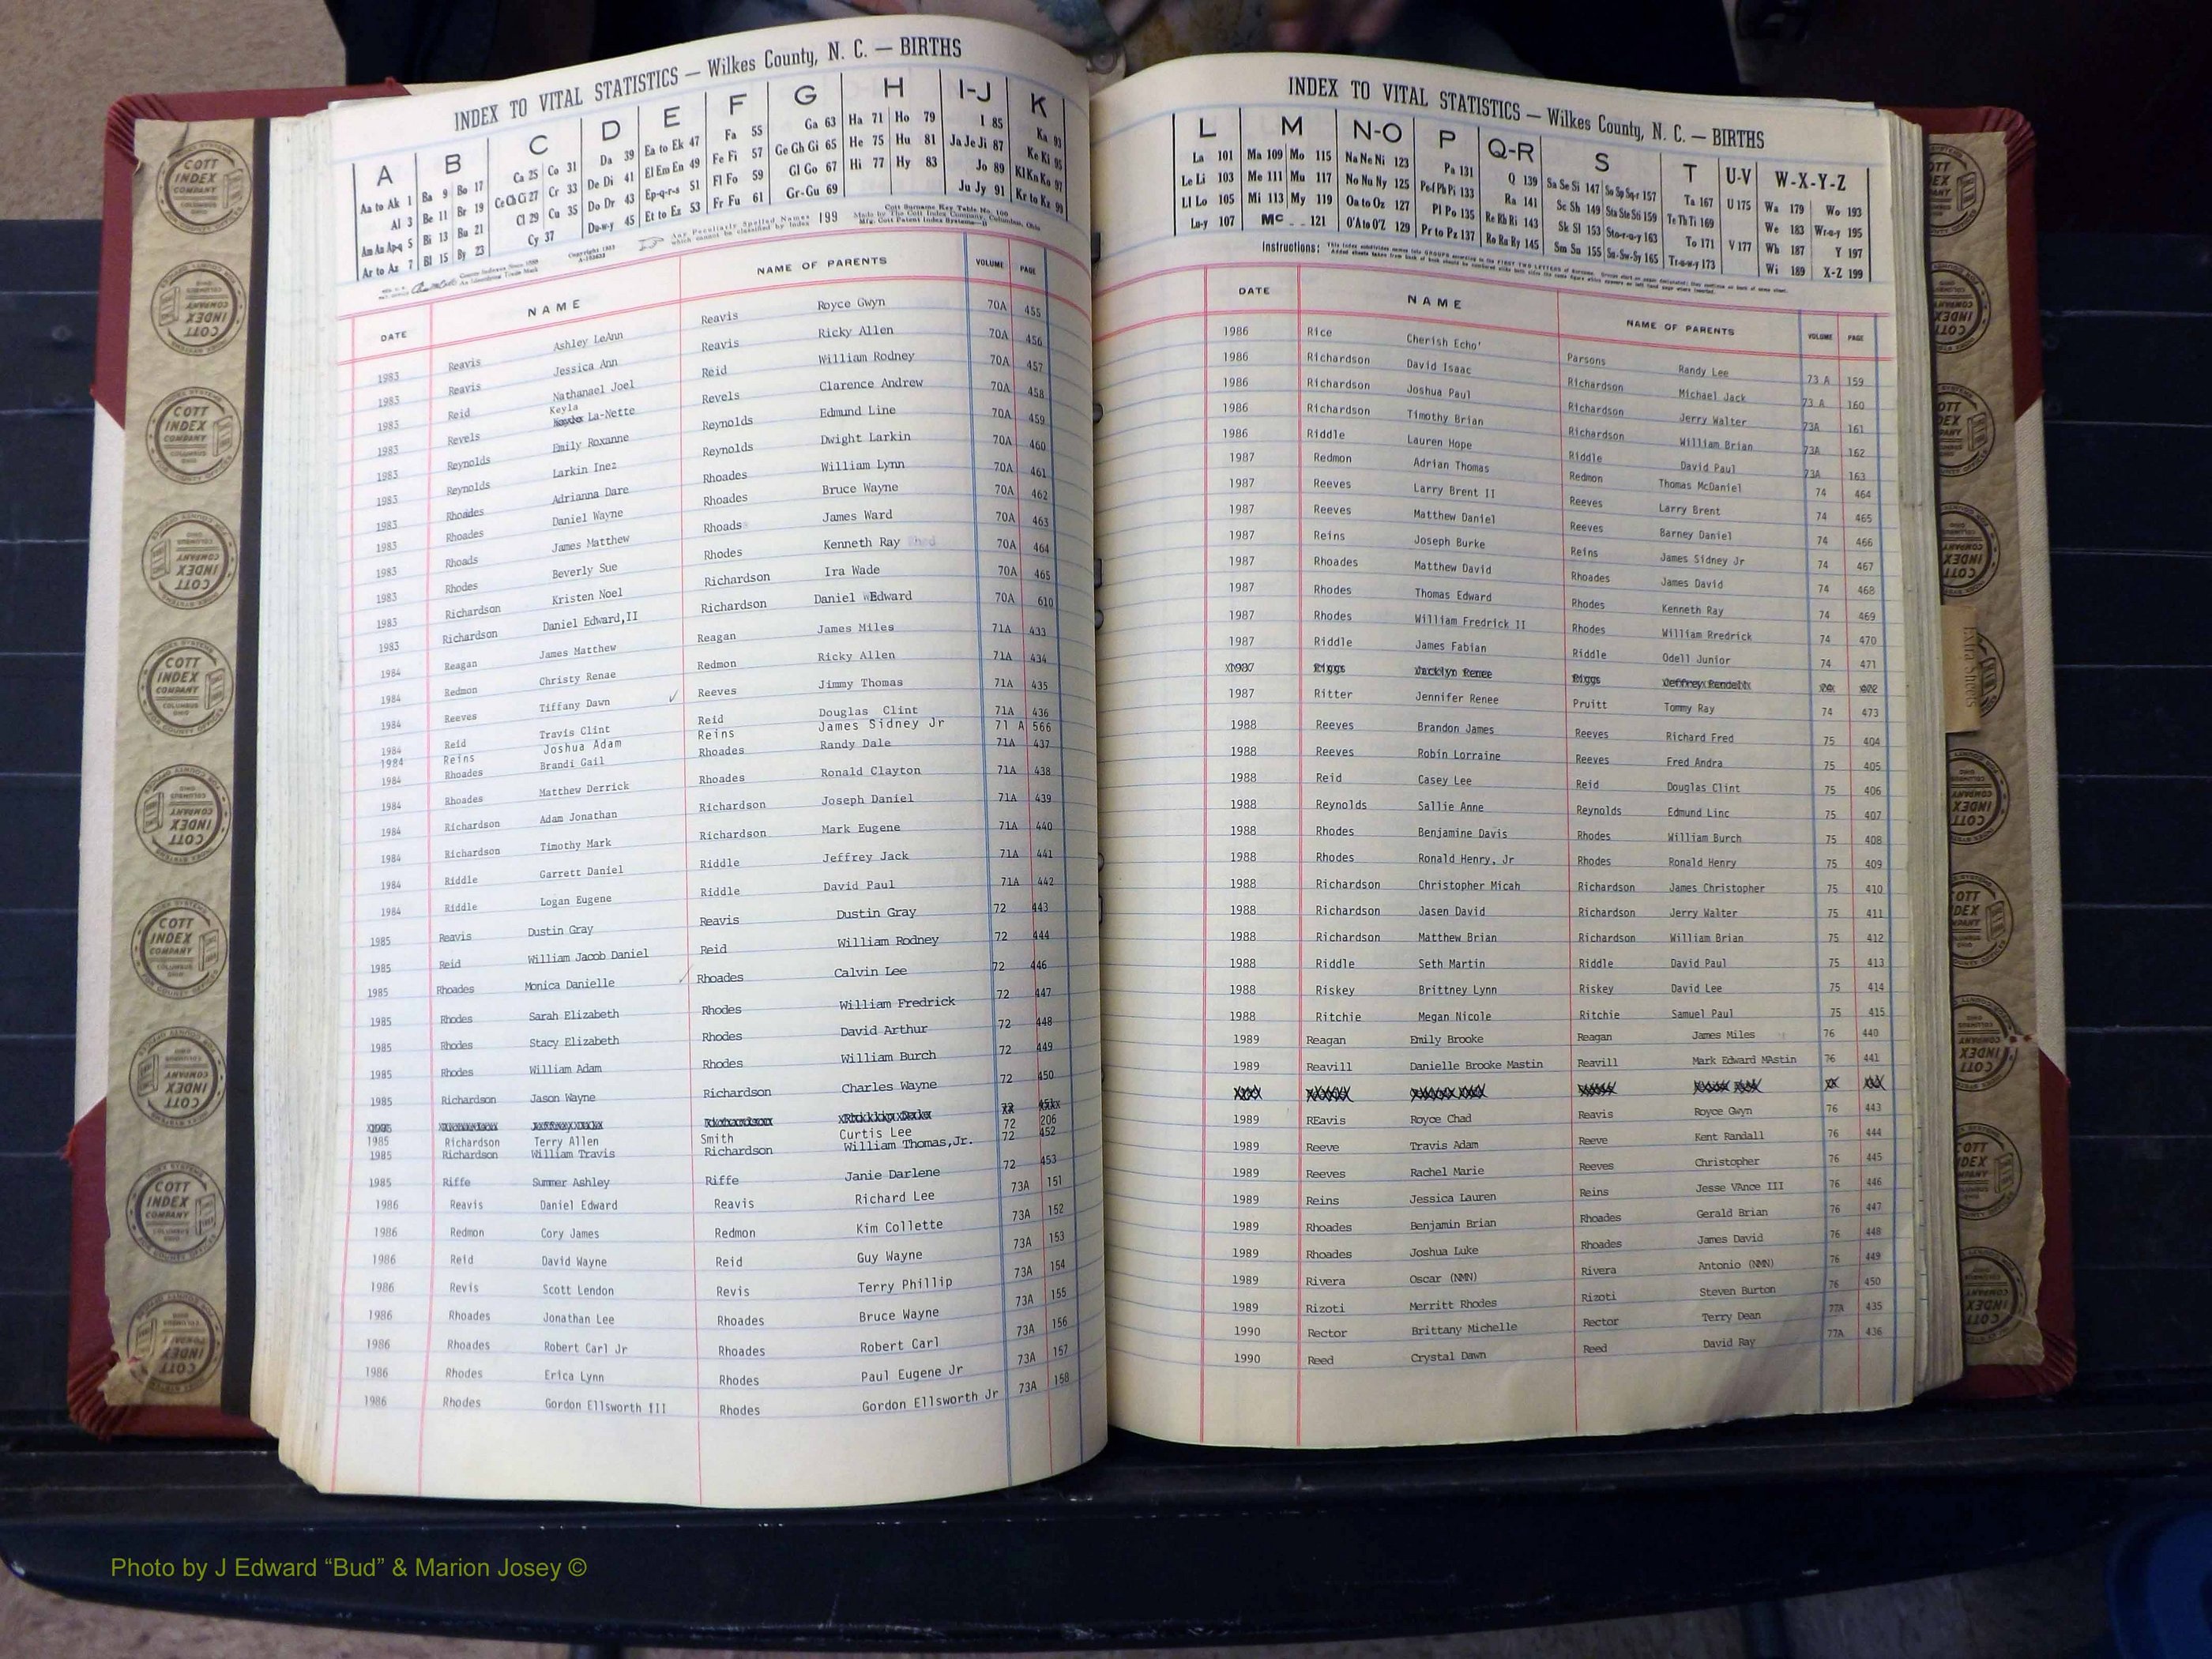 INDEX TO VITAL STATISTICS — Wilkes County, N. C. — BIRTHS
A B C D E F G H I-J K
Aa to Ak 1 Ba 9 Bo 17 Ca 25 Co 31 Da 39 Ea to Ek 47 Fa 55 Ga 63 Ha 71 Ho 79 I 85 Ka 93
Al 3 Be 11 Br 19 Ce Ch Ci 27 Cr 33 De Di 41 El Em En 49 Fe Fi 57 Ge Gh Gi 65 He 75 Hu 81 Ja Je Ji 87 Ke Ki 95
Am An Ap-q 5 Bi 13 Bu 21 Cl 29 Cu 35 Do Dr 43 Ep-q-r-s 51 Fl Fo 59 Gl Go 67 Hi 77 Hy 83 Jo 89 Kl Kn Ko 97
Ar to Az 7 Bl 15 By 23 Cy 37 Du-w-y 45 Et to Ez 53 Fr Fu 61 Gr-Gu 69 Ju Jy 91 Kr to Kz 99
Any Peculiarly Spelled Names which cannot be classified by Index 199
Cott Surname Key Table No. 100
Made by The Cott Index Company, Columbus, Ohio
DATE NAME NAME OF PARENTS VOLUME PAGE
1983 Reavis Ashley LeAnn Reavis Royce Gwyn 70A 455
1983 Reavis Jessica Ann Reavis Ricky Allen 70A 456
1983 Reid Nathanael Joel Reid William Rodney 70A 457
Keyla
1983 Revels La-Nette Revels Clarence Andrew 70A 458
1983 Reynolds Emily Roxanne Reynolds Edmund Line 70A 459
1983 Reynolds Larkin Inez Reynolds Dwight Larkin 70A 460
1983 Rhoades Adrianna Dare Rhoades William Lynn 70A 461
1983 Rhoades Daniel Wayne Rhoades Bruce Wayne 70A 462
1983 Rhoads James Matthew Rhoads James Ward 70A 463
1983 Rhodes Beverly Sue Rhodes Kenneth Ray 70A 464
1983 Richardson Kristen Noel Richardson Ira Wade 70A 465
1983 Richardson Daniel Edward,II Richardson Daniel Edward 70A 610
1984 Reagan James Matthew Reagan James Miles 71A 433
1984 Redmon Christy Renae Redmon Ricky Allen 71A 434
1984 Reeves Tiffany Dawn ✓ Reeves Jimmy Thomas 71A 435
1984 Reid Travis Clint Reid Douglas Clint 71A 436
1984 Reins Joshua Adam Reins James Sidney Jr 71 A 566
1984 Rhoades Brandi Gail Rhoades Randy Dale 71A 437
1984 Rhoades Matthew Derrick Rhoades Ronald Clayton 71A 438
1984 Richardson Adam Jonathan Richardson Joseph Daniel 71A 439
1984 Richardson Timothy Mark Richardson Mark Eugene 71A 440
1984 Riddle Garrett Daniel Riddle Jeffrey Jack 71A 441
1984 Riddle Logan Eugene Riddle David Paul 71A 442
1985 Reavis Dustin Gray Reavis Dustin Gray 72 443
1985 Reid William Jacob Daniel Reid William Rodney 72 444
1985 Rhoades Monica Danielle ✓ Rhoades Calvin Lee 72 446
1985 Rhodes Sarah Elizabeth Rhodes William Fredrick 72 447
1985 Rhodes Stacy Elizabeth Rhodes David Arthur 72 448
1985 Rhodes William Adam Rhodes William Burch 72 449
1985 Richardson Jason Wayne Richardson Charles Wayne 72 450
1985 Richardson Terry Allen Smith Curtis Lee 72 206
1985 Richardson William Travis Richardson William Thomas,Jr. 72 452
1985 Riffe Summer Ashley Riffe Janie Darlene 72 453
1986 Reavis Daniel Edward Reavis Richard Lee 73A 151
1986 Redmon Cory James Redmon Kim Collette 73A 152
1986 Reid David Wayne Reid Guy Wayne 73A 153
1986 Revis Scott Lendon Revis Terry Phillip 73A 154
1986 Rhoades Jonathan Lee Rhoades Bruce Wayne 73A 155
1986 Rhoades Robert Carl Jr Rhoades Robert Carl 73A 156
1986 Rhodes Erica Lynn Rhodes Paul Eugene Jr 73A 157
1986 Rhodes Gordon Ellsworth III Rhodes Gordon Ellsworth Jr 73A 158
INDEX TO VITAL STATISTICS — Wilkes County, N. C. — BIRTHS
L M N-O P Q-R S T U-V W-X-Y-Z
La 101 Ma 109 Mo 115 Na Ne Ni 123 Pa 131 Q 139 Sa Se Si 147 So Sp Sq-r 157 Ta 167 U 175 Wa 179 Wo 193
Le Li 103 Me 111 Mu 117 No Nu Ny 125 Pe-f Ph Pi 133 Ra 141 Sc Sh 149 Sta Ste Sti 159 Te Th Ti 169 We 183 Wr-u-y 195
Ll Lo 105 Mi 113 My 119 Oa to Oz 127 Pl Po 135 Re Rh Ri 143 Sk Sl 153 Sto-r-u-y 163 To 171 V 177 Wh 187 Y 197
Lu-y 107 Mc 121 O'A to O'Z 129 Pr to Pz 137 Ro Ru Ry 145 Sm Sn 155 Su-Sw-Sy 165 Tr-u-w-y 173 Wi 189 X-Z 199
Instructions:
DATE NAME NAME OF PARENTS VOLUME PAGE
1986 Rice Cherish Echo' Parsons Randy Lee 73 A 159
1986 Richardson David Isaac Richardson Michael Jack 73 A 160
1986 Richardson Joshua Paul Richardson Jerry Walter 73A 161
1986 Richardson Timothy Brian Richardson William Brian 73A 162
1986 Riddle Lauren Hope Riddle David Paul 73A 163
1987 Redmon Adrian Thomas Redmon Thomas McDaniel 74 464
1987 Reeves Larry Brent II Reeves Larry Brent 74 465
1987 Reeves Matthew Daniel Reeves Barney Daniel 74 466
1987 Reins Joseph Burke Reins James Sidney Jr 74 467
1987 Rhoades Matthew David Rhoades James David 74 468
1987 Rhodes Thomas Edward Rhodes Kenneth Ray 74 469
1987 Rhodes William Fredrick II Rhodes William Rredrick 74 470
1987 Riddle James Fabian Riddle Odell Junior 74 471
1987 Ritter Jennifer Renee Pruitt Tommy Ray 74 473
1988 Reeves Brandon James Reeves Richard Fred 75 404
1988 Reeves Robin Lorraine Reeves Fred Andra 75 405
1988 Reid Casey Lee Reid Douglas Clint 75 406
1988 Reynolds Sallie Anne Reynolds Edmund Linc 75 407
1988 Rhodes Benjamine Davis Rhodes William Burch 75 408
1988 Rhodes Ronald Henry, Jr Rhodes Ronald Henry 75 409
1988 Richardson Christopher Micah Richardson James Christopher 75 410
1988 Richardson Jasen David Richardson Jerry Walter 75 411
1988 Richardson Matthew Brian Richardson William Brian 75 412
1988 Riddle Seth Martin Riddle David Paul 75 413
1988 Riskey Brittney Lynn Riskey David Lee 75 414
1988 Ritchie Megan Nicole Ritchie Samuel Paul 75 415
1989 Reagan Emily Brooke Reagan James Miles 76 440
1989 Reavill Danielle Brooke Mastin Reavill Mark Edward MAstin 76 441
1989 REavis Royce Chad Reavis Royce Gwyn 76 443
1989 Reeve Travis Adam Reeve Kent Randall 76 444
1989 Reeves Rachel Marie Reeves Christopher 76 445
1989 Reins Jessica Lauren Reins Jesse VAnce III 76 446
1989 Rhoades Benjamin Brian Rhoades Gerald Brian 76 447
1989 Rhoades Joshua Luke Rhoades James David 76 448
1989 Rivera Oscar (NMN) Rivera Antonio (NMN) 76 449
1989 Rizoti Merritt Rhodes Rizoti Steven Burton 76 450
1990 Rector Brittany Michelle Rector Terry Dean 77A 435
1990 Reed Crystal Dawn Reed David Ray 77A 436
Extra Sheets
COTT INDEX COMPANY
Photo by J Edward “Bud” & Marion Josey ©